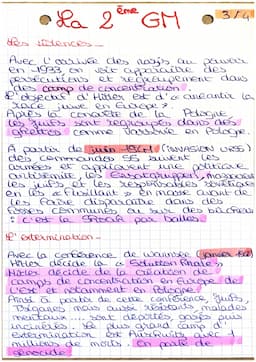 La 2ème GM
3/4
Les violences
Avec l'arrivée des nazis au pouvoir
en 1933, on voit apparaître des
persécutions et regroupement dans
des camp de concentration.
L'objectif d'Hitler est d'« anéantir la
race juive en Europe ».
Après la conquête de la Pologne
les juifs sont regroupés dans des
ghettos comme Varsovie en Pologne.
A partir de juin 1941 (INVASION URSS)
des commandos SS suivent les
armées et appliquent une politique
antisémite, les Einsatzgruppen, massacre
les juifs et les responsables soviétiques
en les « fusillant » en masse avant de
les faire disparaître dans des
fosses communes ou sur des bûchers
: c'est la Shoah par balles
L'extermination
Avec la conférence de Wannsee (janvier 42)
Hitler décide la « solution finale »
Hitler décide de la création de
camps de concentration en Europe de
l'Est et notamment en Pologne.
Ainsi à partir de cette conférence, juifs,
Tziganes mais aussi résistants, malades
mentaux ... sont déportés, gazés puis
incinérés. Le plus grand camp d'
extermination est Auschwitz avec 1
millions de morts. On parle de
génocide